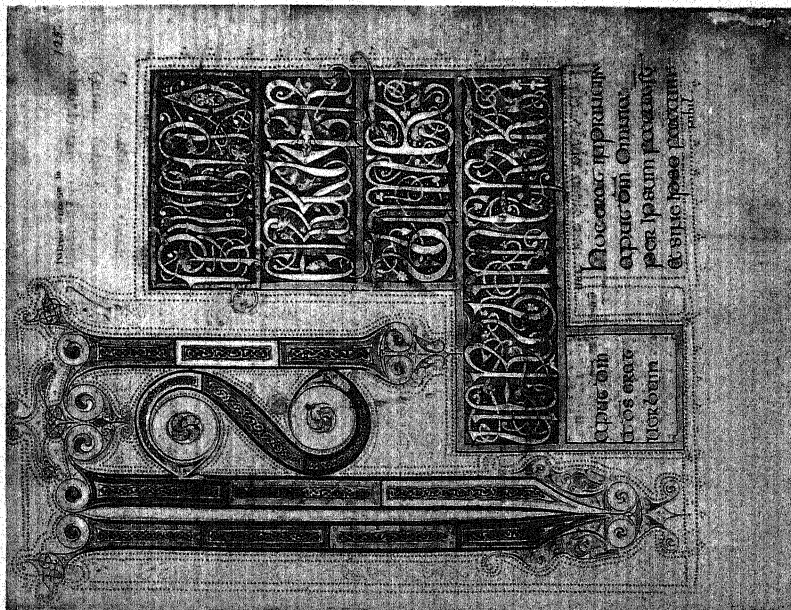 IN P
RINCIPIO
ERAT UER
BUM &
UERBUM ERAT
apud dm
& ds erat
uerbum
hoc erat in principio
apud dm Omnia
per ipsum facta sunt
& sine ipso factum
nihil